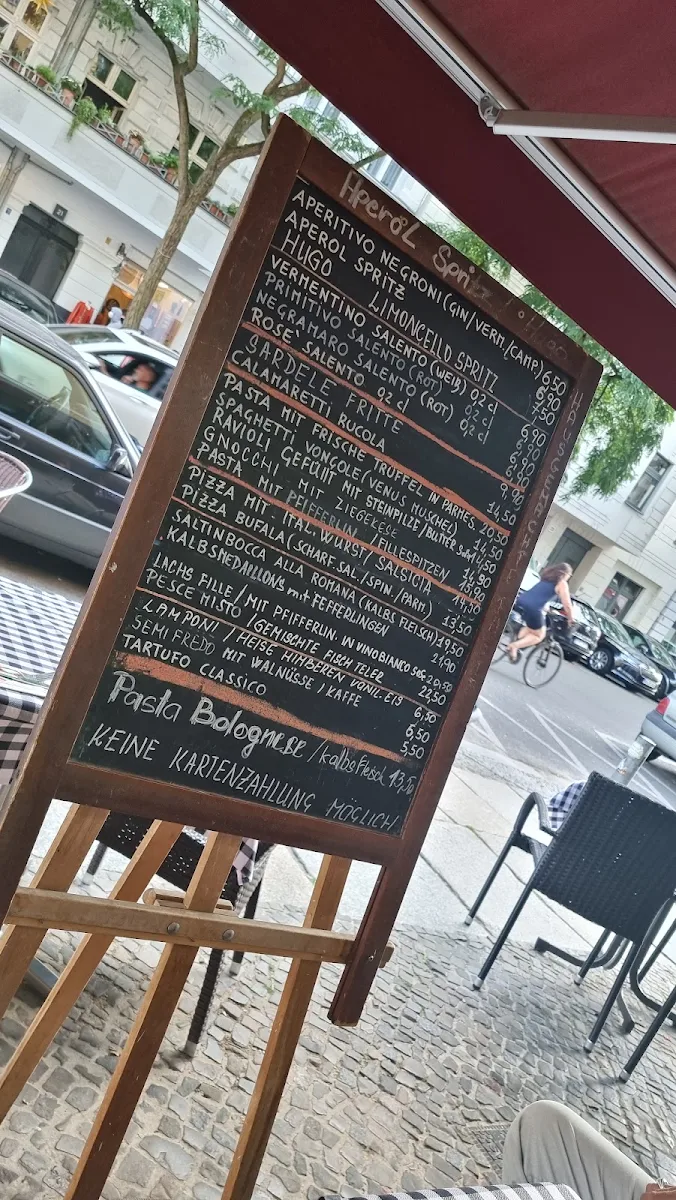 Aperol Spritz
APERITIVO NEGRONI (GIN/VERM/CAMP) 6,50
APEROL SPRITZ 6,90
HUGO LIMONCELLO SPRITZ 7,50
VERMENTINO SALENTO (WEIß) 02 cl 6,90
PRIMITIVO SALENTO (ROT) 02 cl 6,90
NEGRAMARO SALENTO (ROT) 02 cl 6,90
ROSE' SALENTO 02 cl 6,90
SARDELE FRITTE 9,90
CALAMARETTI RUCOLA 14,50
PASTA MIT FRISCHE TRÜFFEL IN PARMES. 20,50
SPAGHETTI VONGOLE (VENUS MUSCHEL) 14,50
RAVIOLI GEFÜLLT MIT STEINPILZE/BUTTER SALB 14,50
GNOCCHI MIT ZIEGEKESE 14,90
PASTA MIT PFIFFERLIN / FILLESPITZEN 15,90
PIZZA MIT ITAL. WURST/ SALSICIA 14,50
PIZZA BUFALA (SCHARF.SAL./SPIN./PARM) 13,50
SALTINBOCCA ALLA ROMANA (KALBS FLEISCH) 19,50
KALBSMEDALLONS mit FEFFERLINGEN 21,90
LACHS FILLE / MIT PFIFFERLIN IN VINO BIANCO SOS 20,50
PESCE MISTO / GEMISCHTE FISCH TELER 22,50
LAMPONI / HEIßE HIMBEREN VANIL. EIS 6,50
SEMIFREDO MIT WALNÜSSE / KAFFE 6,50
TARTUFO CLASSICO 5,50
Pasta Bolognese / kalbsfleisch 13,50
KEINE KARTENZAHLUNG MÖGLICH
HAUSGEMACHTE